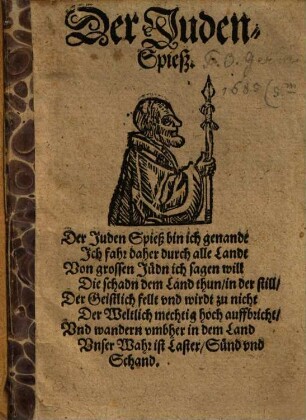 Der Juden
Spieß.
Der Juden Spieß bin ich genandt
Ich fahr daher durch alle Landt
Von grossen Jüdn ich sagen will
Die schadn dem Land thun/in der still/
Der Geistlich fellt vnd wirdt zu nicht
Der Weltlich mechtig hoch auffbricht/
Vnd wandern vmbher in dem Land
Vnser Wahr ist Laster/Sünd vnd
Schand.